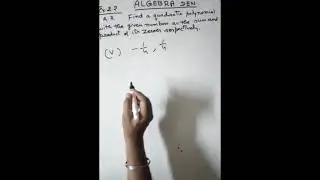 Ex 2.2 ALGEBRA GEN
Q.2. Find a quadratic polynomial
with the given number as the sum and
product of its zeroes respectively.
(V) -1/4, 1/4